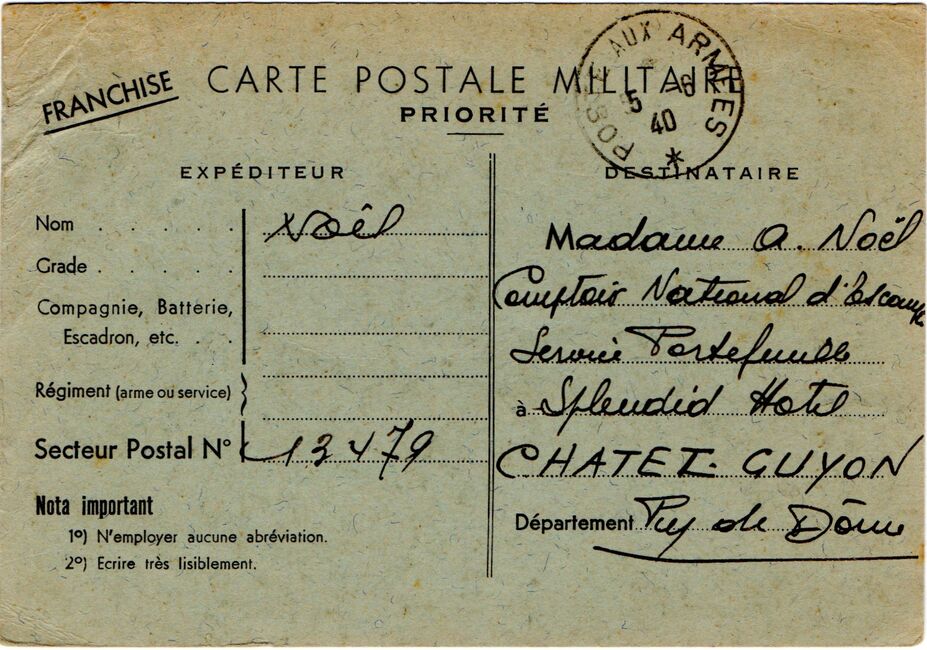 FRANCHISE
CARTE POSTALE MILITAIRE
PRIORITÉ
POSTE AUX ARMEES
5 6
40
*
EXPÉDITEUR
Nom . . . . . Noêl
Grade . . . . . .
Compagnie, Batterie,
Escadron, etc. . .
Régiment (arme ou service)
Secteur Postal N° 13479
Nota important
1º) N'employer aucune abréviation.
2º) Ecrire très lisiblement.
DESTINATAIRE
Madame A. Noël
Comptoir National d'Escompte
Service Portefeuille
à Splendid Hotel
CHATEL-GUYON
Département Puy de Dôme